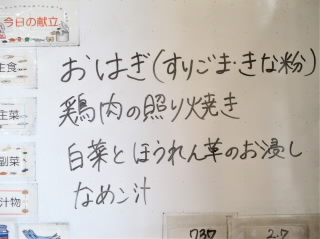 今日の献立
おはぎ(すりごま・きな粉)
主食
鶏肉の照り焼き
主菜
白菜とほうれん草のお浸し
副菜
なめこ汁
汁物
737 2.7